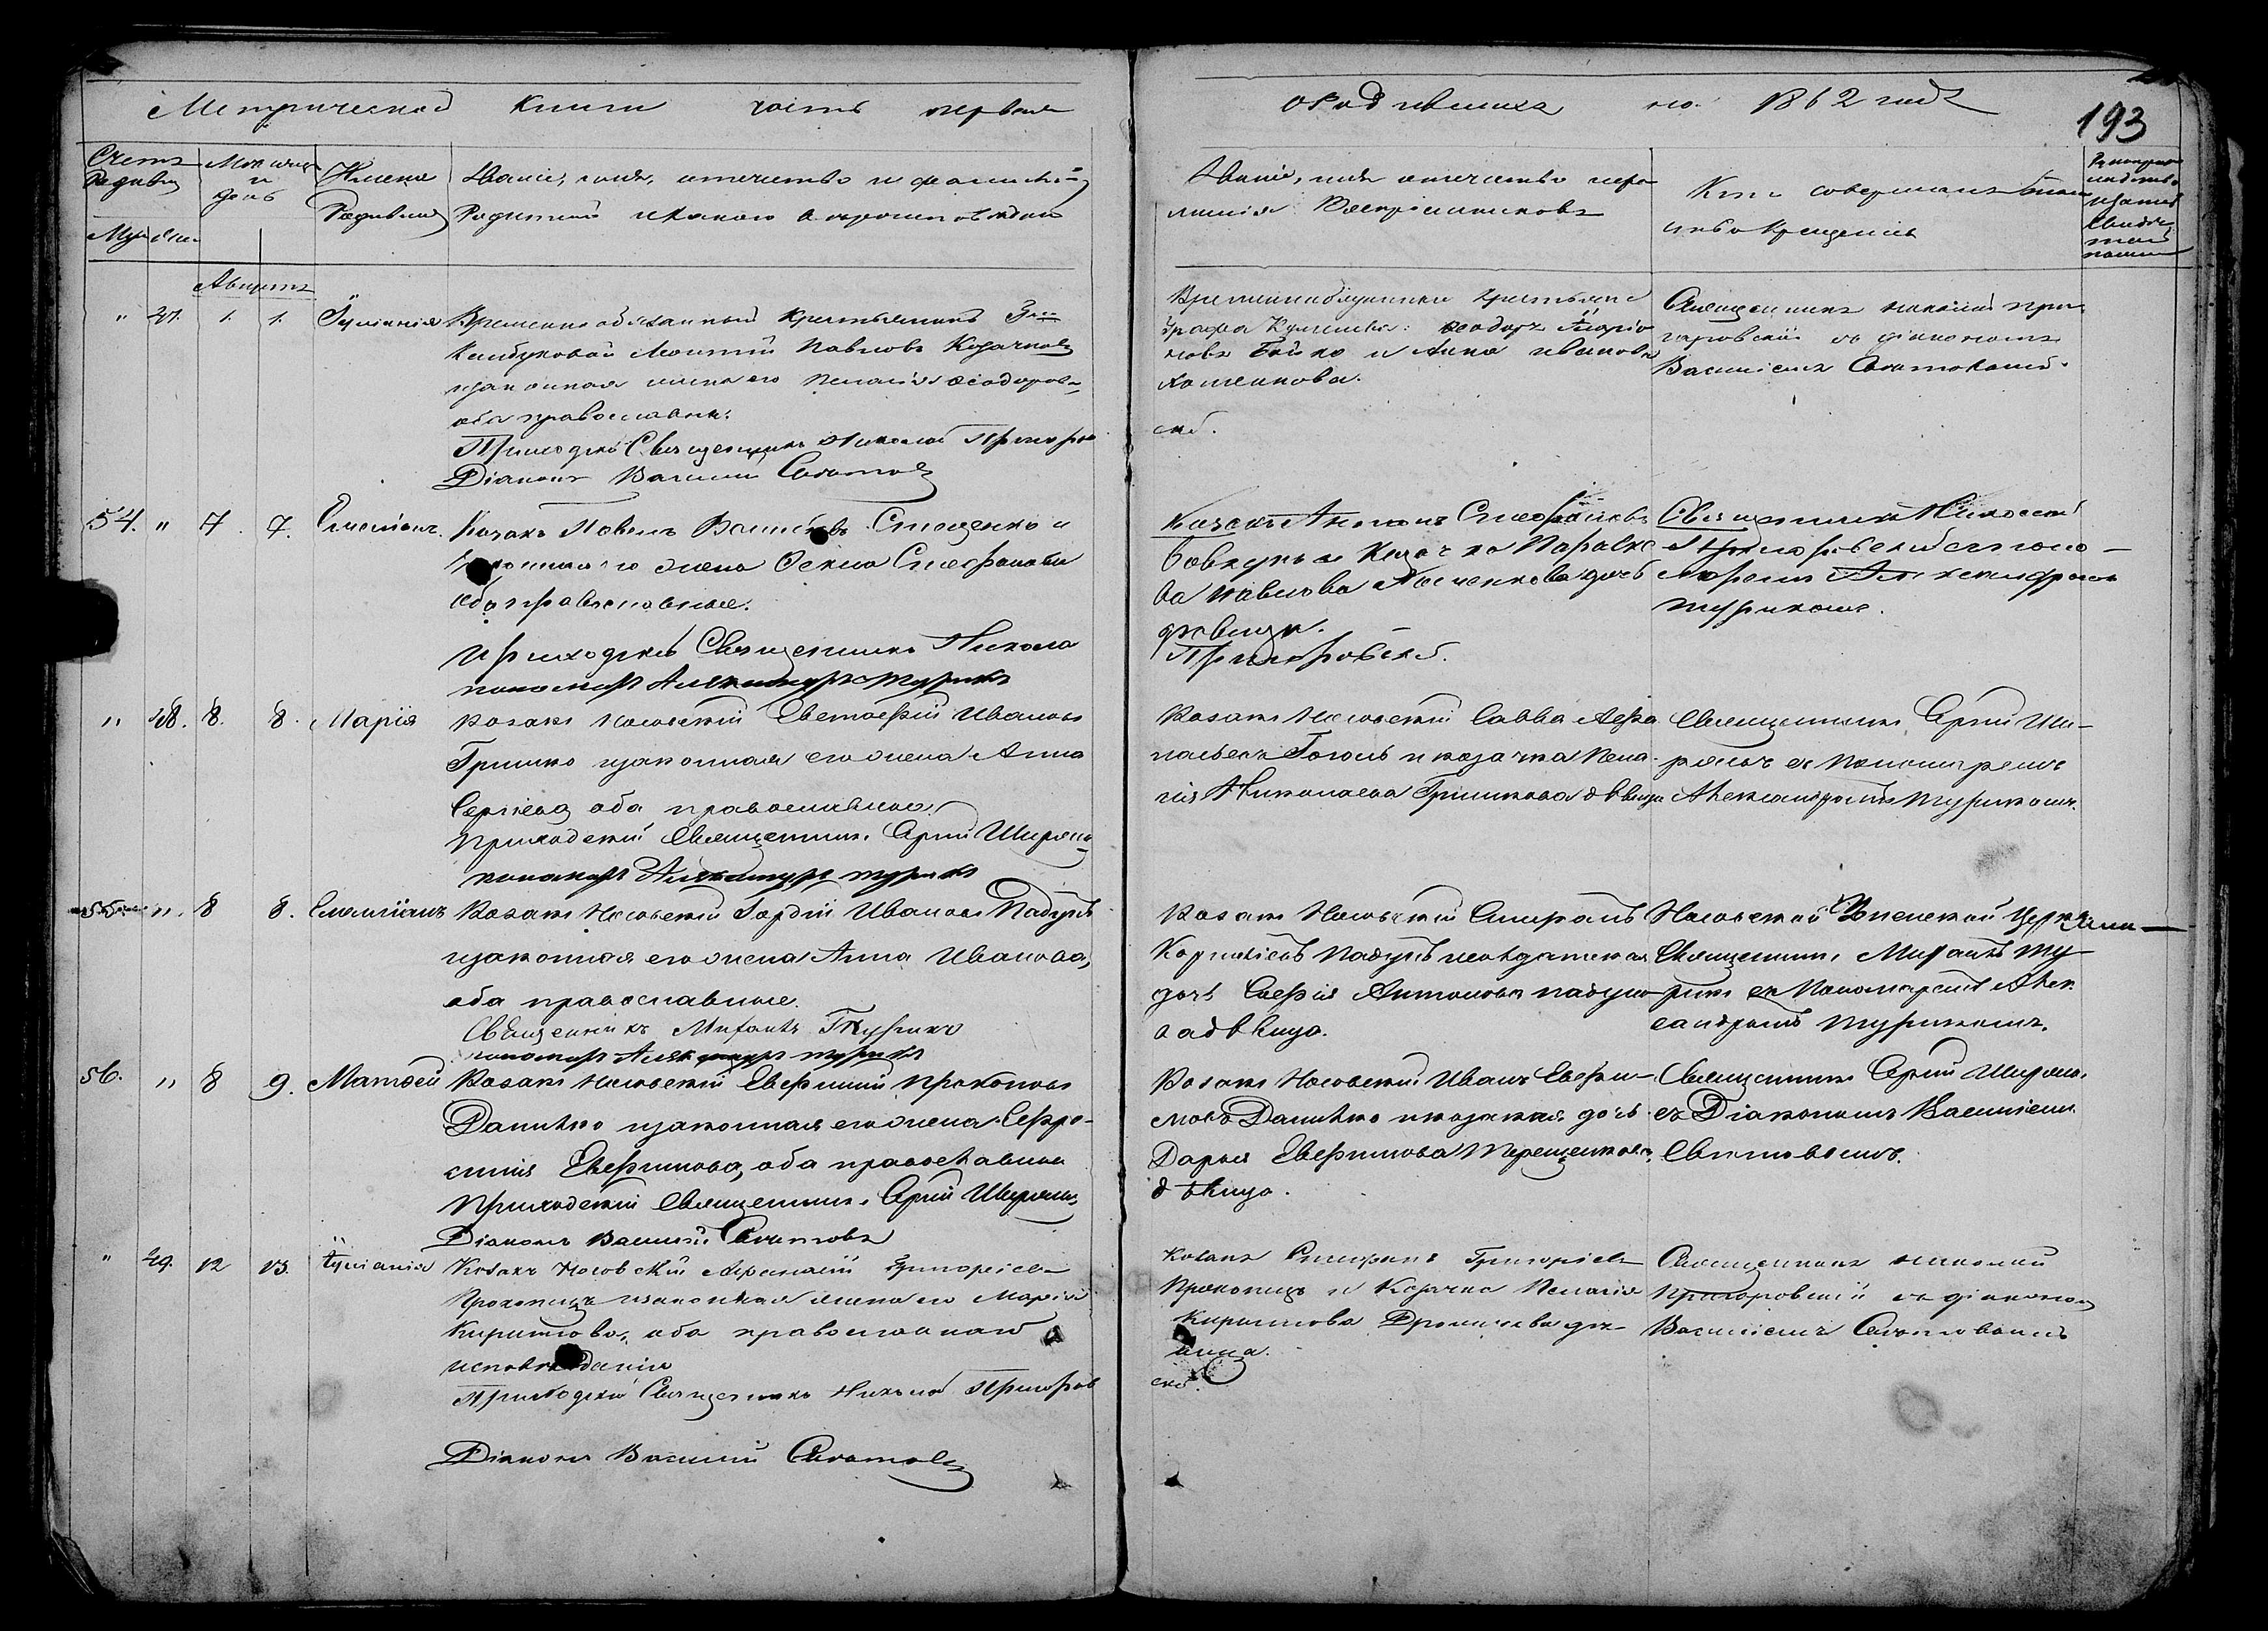 Метрической книги часть первая
о родившихся на 1862 годъ
193
Счетъ Родивш
Муж Жен
Мѣсяцъ и день
Имена Родивш
Званіе, имя, отчество и фамилія
Родителей и какого вѣроисповѣданія
Званіе, имя отчество и фа-
милія Воспріемниковъ
Кто совершалъ таин-
ство Крещенія
Августъ
" 27. 1. 1. Іуліанія
Временно обязанный крестьянинъ
Павловъ Козачковъ
и законная жена его Пелагія Ѳеодорова
оба православные.
Приходскій Священникъ Николай Пригоров
Діаконъ Василій Святовъ
Временнообязанные крестьяне
Графа Ѳеодоръ
Бойко и Анна Иванова
скій.
Священникъ Николай При-
горовскій съ діакономъ
Василіемъ Святовымъ.
54. " 7. 7. Емеліанъ.
Козакъ Павелъ Стеценко и
законная его жена Стефанова
оба православные.
Приходскій Священникъ Николай
пономарь Александръ Турикъ
Козакъ Антонъ Стефановъ
Бовкунъ и Козачка Параске-
ва Павлова дочь
дѣвица.
Пригоровскій.
Священникъ Николай
Пригоровскій съ поно-
маремъ Александромъ
Турикомъ.
" 28. 8. 8. Марія
Козакъ Носовскій Евстафій Ивановъ
Гришко и законная его жена Анна
Сергіева оба православные
Приходскій Священникъ Сергій Ширяевъ
пономарь Александръ Турикъ
Козакъ Носовскій Савва Афа-
насьевъ Гоголь и козачка Пела-
гія Николаева Гришкова дѣвица
Священникъ Сергій Ши-
ряевъ съ Пономаремъ
Александромъ Турикомъ.
55. " 8 8. Емеліанъ
Козакъ Носовскій Гордій Ивановъ Падунъ
и законная его жена Анна Иванова,
оба православные.
Священникъ Мифанъ Турикъ
пономарь Александръ Турикъ
Козакъ Носовскій Спиранъ
Корнѣевъ Падунъ и солдатская
дочь Софія Антонова Падуно-
ва дѣвица.
Носовской Успенской Церкви
Священникъ Мифанъ Ту-
рикъ съ Пономаремъ Алек-
сандромъ Турикомъ.
56. " 8 9. Матѳей
Козакъ Носовскій Евфимій Прокоповъ
Данилко и законная его жена Ефро-
синія Евфимова, оба православные
Приходскій Священникъ Сергій Ширяевъ
Діаконъ Василій Святовъ
Козакъ Носовскій Иванъ Евфи-
мовъ Данилко и козачья дочь
Дарья Евфимова Терещенкова,
дѣвица.
Священникъ Сергій Ширяевъ
съ Діакономъ Василіемъ
Святовымъ.
" 29. 12 13. Іуліанія
Козакъ Носовскій Афанасій Григоріев
Прокопецъ и законная жена его Марія
Кириллова, оба православнаго
исповѣданія
Приходскій Священникъ Николай Пригоров
Діаконъ Василій Святовъ
Козакъ Стефанъ Григоріев
Прокопецъ и Козачка Пелагія
Кириллова дѣ-
вица.
скій.
Священникъ Николай
Пригоровскій съ діакономъ
Василіемъ Святовымъ